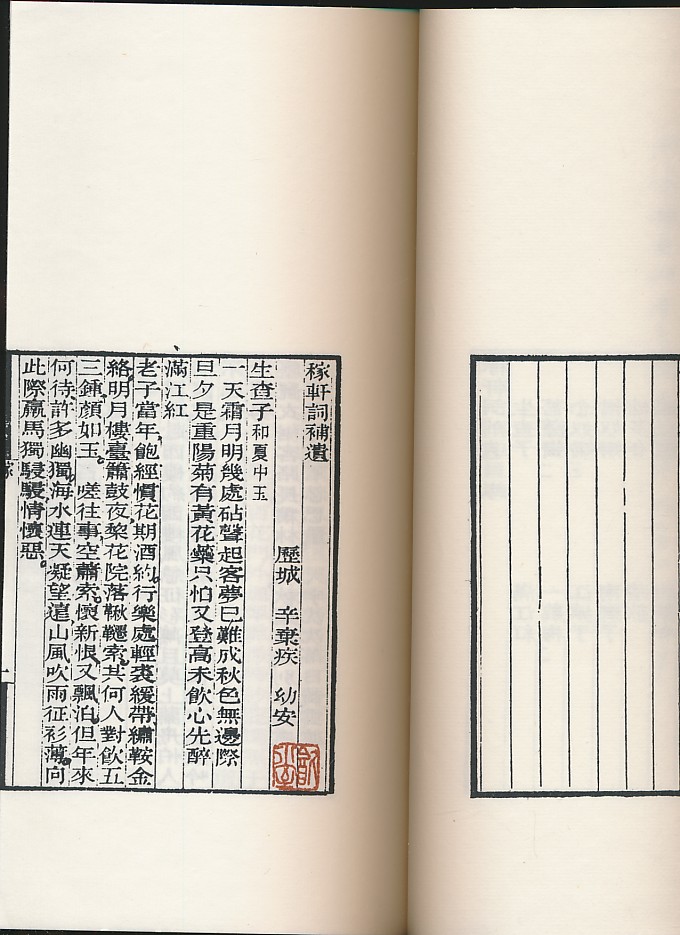 稼軒詞補遺
歷城 辛棄疾 幼安
生查子和夏中玉
一天霜月明幾處砧聲起客夢已難成秋色無邊際
旦夕是重陽菊有黃花蘂只怕又登高未飲心先醉
滿江紅
老子當年飽經慣花期酒約行樂處輕裘緩帶繡鞍金
絡明月樓臺簫鼓夜棃花院落鞦韆索共何人對飲五
三鍾顏如玉 嗟往事空蕭索懷新恨又飄泊但年來
何待許多幽獨海水連天凝望遠山風吹雨征衫薄向
此際羸馬獨駸駸情懷惡